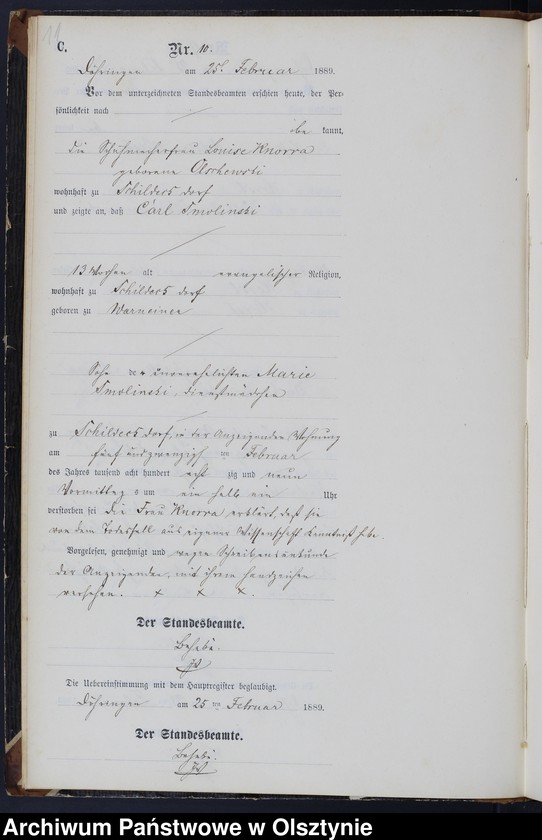 11
C.
Nr. 10.
Döhringen am 25t Februar 1889.
Vor dem unterzeichneten Standesbeamten erschien heute, der Per-
sönlichkeit nach
be kannt,
die Schuhmacherfrau Louise Knorra
geborene Olschewski
wohnhaft zu Schilders dorf
und zeigte an, daß Carl Smolinski
13 Wochen alt evangelischer Religion,
wohnhaft zu Schilders dorf
geboren zu Warneinen
Sohn der unverehelichten Marie
Smolinski, Dienstmädchen
zu Schilders dorf, in der Anzeigenden Wohnung
am fünf und zwanzigsten ten Februar
des Jahres tausend acht hundert acht zig und neun
Vormittag s um ein halb ein Uhr
verstorben sei die Frau Knorra erklärt, daß sie
von dem Todesfall aus eigener Wissenschaft Kenntniß habe.
Vorgelesen, genehmigt und wegen Schreibensunkunde
der Anzeigenden, mit ihrem Handzeichen
versehen. + + +.
Der Standesbeamte.
Die Uebereinstimmung mit dem Hauptregister beglaubigt.
Döhringen am 25 ten Februar 1889.
Der Standesbeamte.
Archiwum Państwowe w Olsztynie